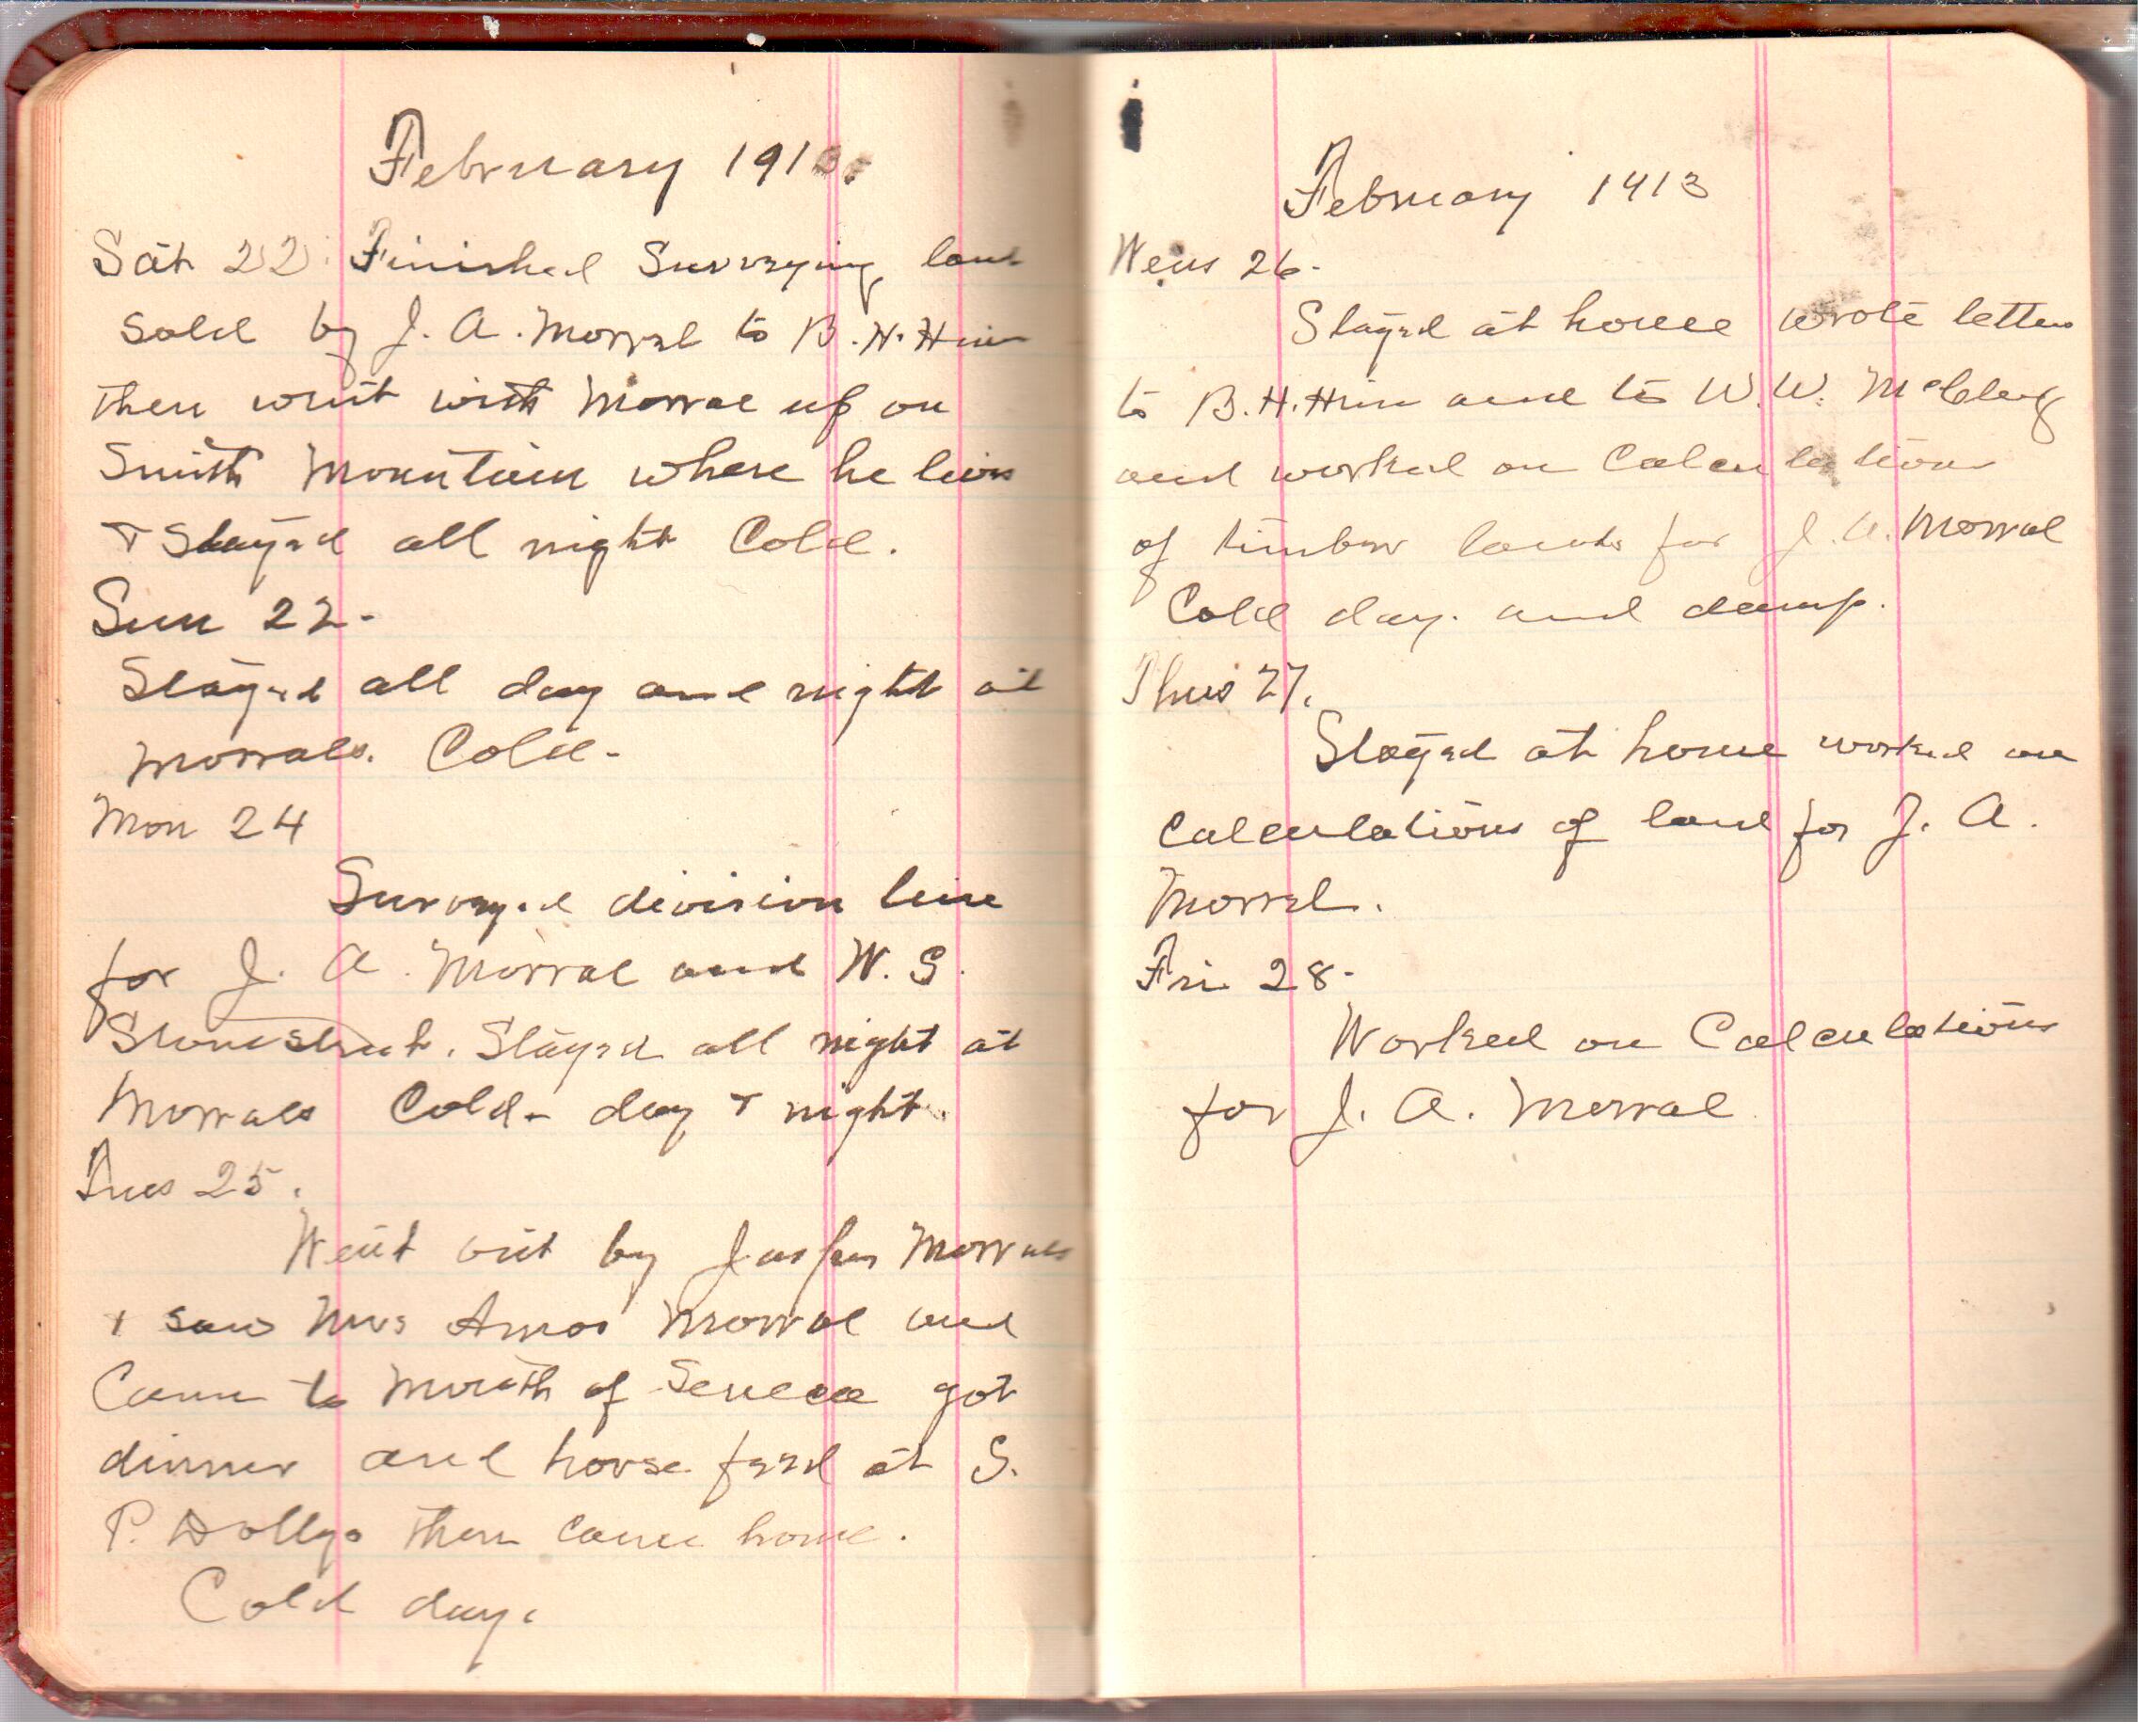 February 1913.
Sat 22. Finished Surveying land
sold by J. A. Morral to B. H. Hiner
then went with Morral up on
Smith Mountain where he lives
& Stayed all night Cold.
Sun 22-
Stayed all day and night at
Morrals. Cold-
Mon 24
Surveyed division line
for J. A. Morral and W. S.
Stonestreet. Stayed all night at
Morrals Cold- day & night.
Tues 25.
Went out by Jasper Morrals
& saw Mrs Amos Morral and
Came to Mouth of Seneca got
dinner and horse feed at S.
P. Dollys then came home.
Cold day.
February 1913
Wens 26-
Stayed at home wrote letters
to B. H. Hiner and to W. W.
and worked on Calculations
of timber lands for J. A. Morral
Cold day. and damp.
Thurs 27.
Stayed at home worked on
Calculations of land for J. A.
Morral.
Fri 28-
Worked on Calculations
for J. A. Morral